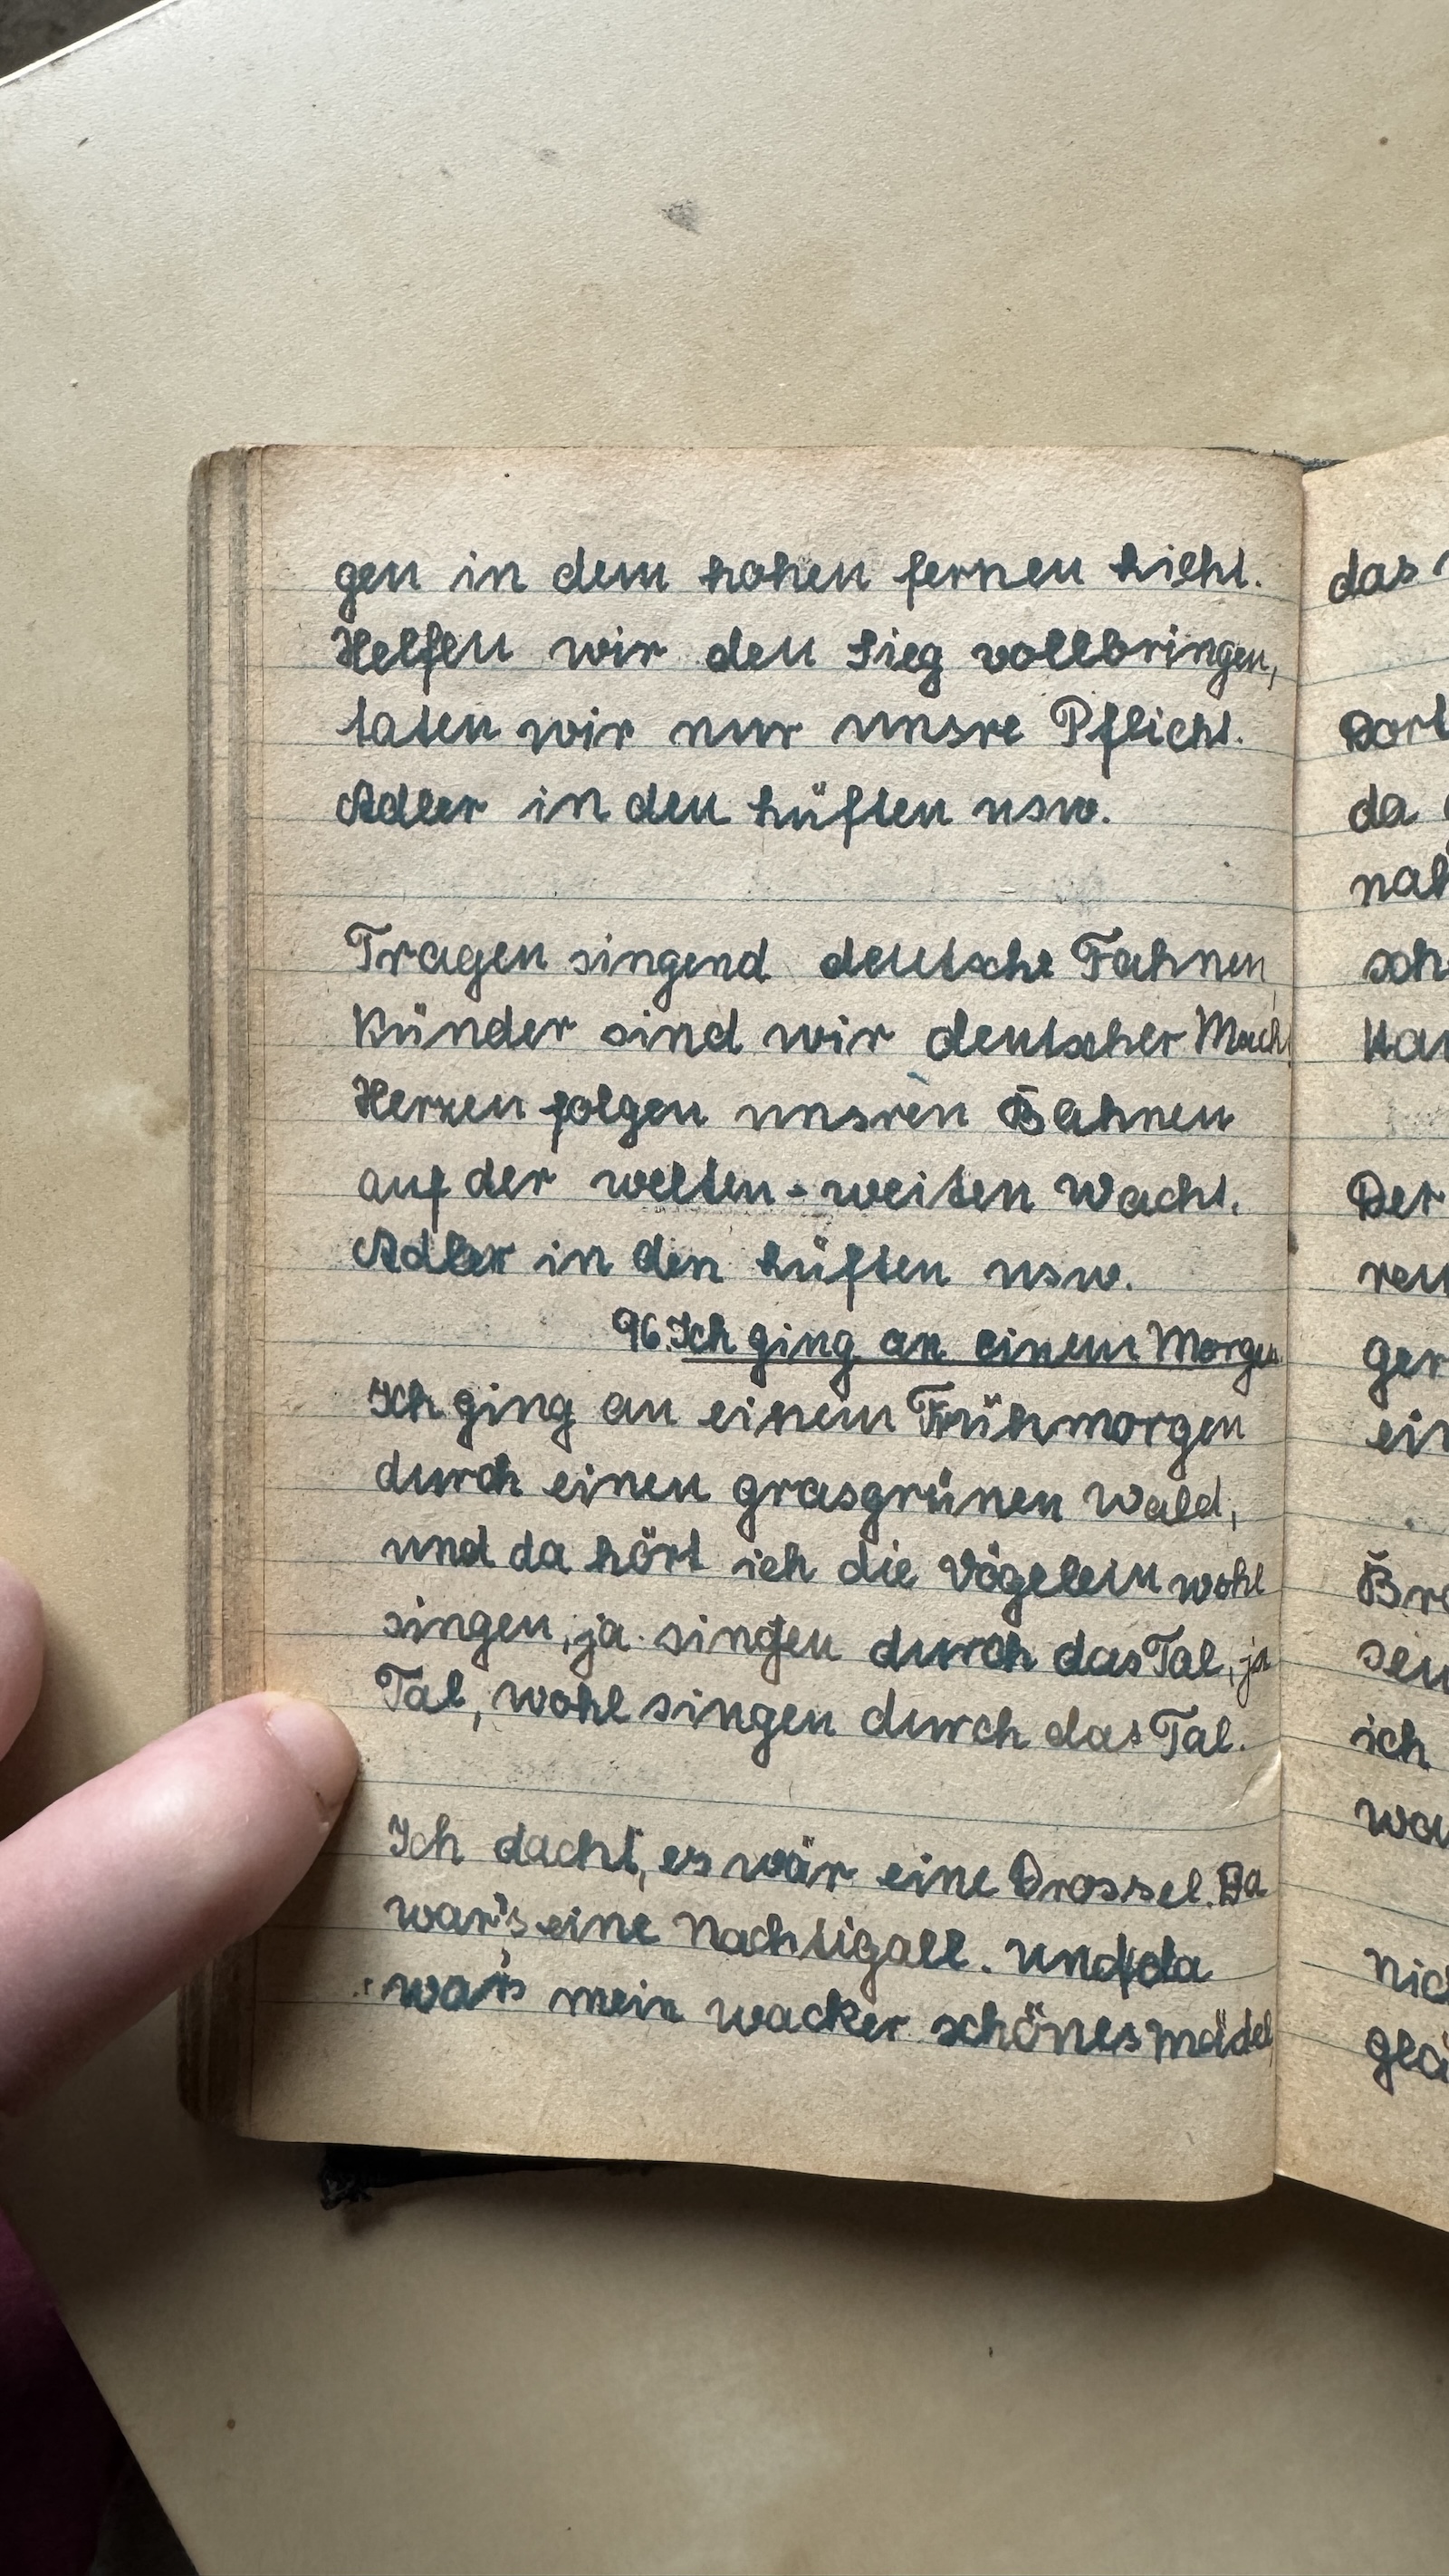 gen in dem hohen fernen Licht.
Helfen wir den Sieg vollbringen,
taten wir nur unsre Pflicht.
Adler in den Lüften usw.
Tragen singend deutsche Fahnen,
Künder sind wir deutscher Macht
Herzen folgen unsren Bahnen
auf der welten-weiten Wacht.
Adler in den Lüften usw.
96. Ich ging an einem Morgen
Ich ging an einem Frühmorgen
durch einen grasgrünen Wald,
und da hört ich die Vögelein wohl
singen, ja singen durch das Tal, ja
Tal, wohl singen durch das Tal.
Ich dacht, es wär eine Drossel. Da
war's eine Nachtigall. Und da
war's mein wacker schönes Mädel,
das
Dort
da
Der
ich